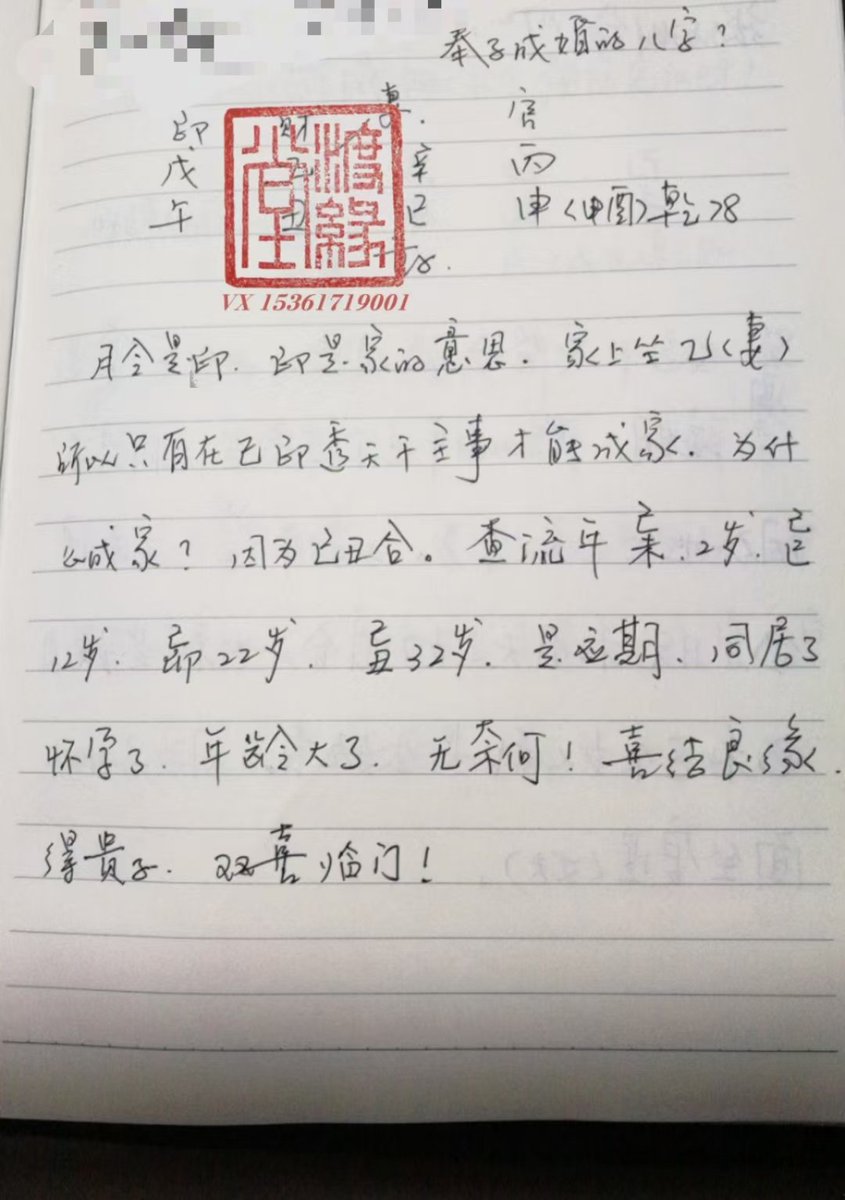 奉子成婚的八字?
印 财 专. 官
戊 乙 辛 丙
午 丑 巳 申〈申酉〉乾28
渡缘堂
VX 15361719001
月令是印. 印是家的意思. 家上坐乙(妻)
所以只有在己印透天干主事才能成家. 为什
么成家? 因为巳丑合。查流年 己未.2岁.己巳
12岁. 己卯22岁. 己丑32岁. 是应期. 同居了
怀孕了. 年龄大了. 无奈何! 喜结良缘.
得贵子. 双喜临门!